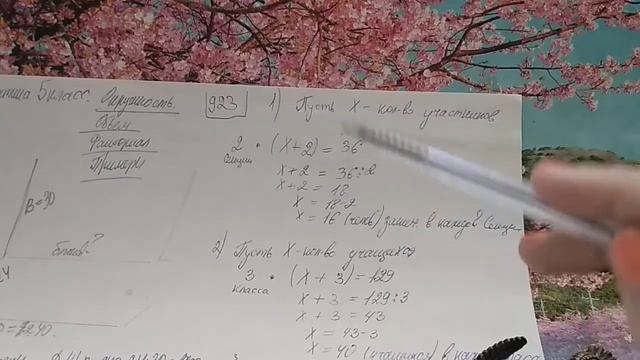 5 класс. Окружность.
Объем
Факториал
Примеры
B=30
923
1) Пусть X - кол-во участников
2 секции • (X+2) = 36
X+2 = 36:2
X+2 = 18
X = 18-2
X = 16 (чел) в каждой секции
2) Пусть X-кол-во учащихся
3 класса • (X+3) = 129
X+3 = 129:3
X+3 = 43
X = 43-3
X = 40 (учащихся) в